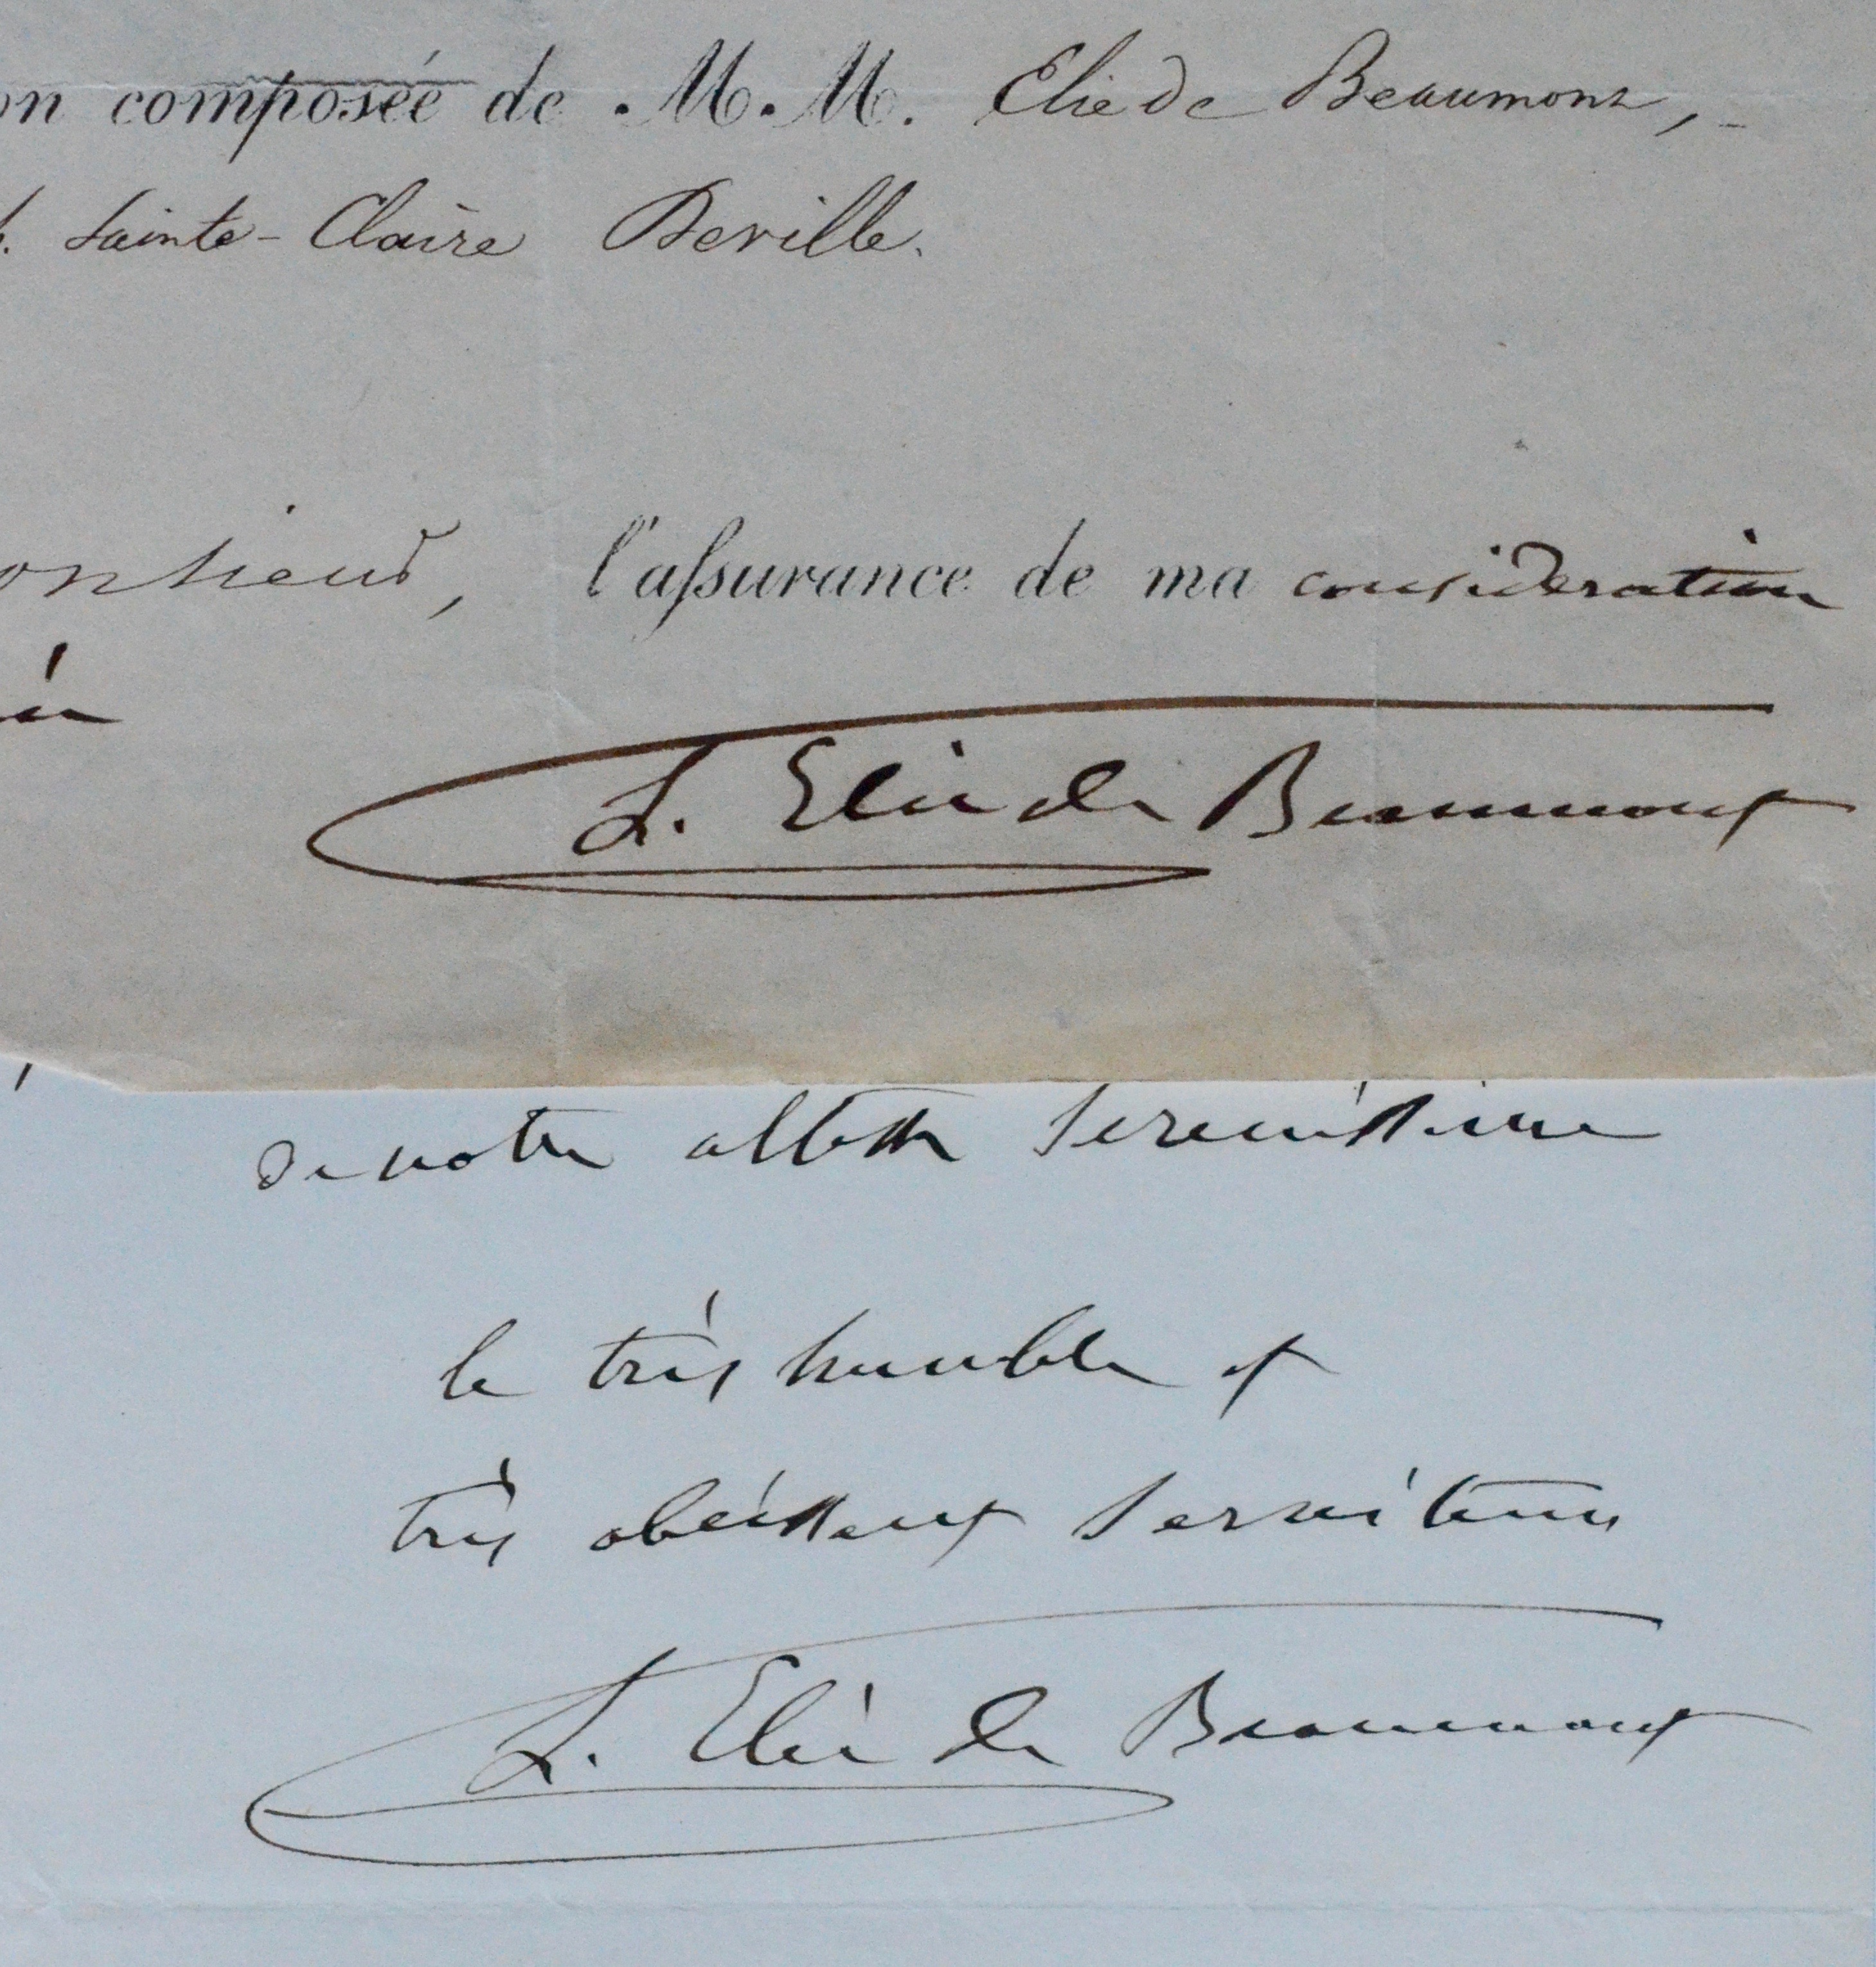 on composée de M.M. Elie de Beaumont,
Sainte-Claire Deville.
onsieur, l'assurance de ma consideration
L. Elie de Beaumont
de votre altesse serenissime
le très humble et
très obéissant serviteur
L. Elie de Beaumont